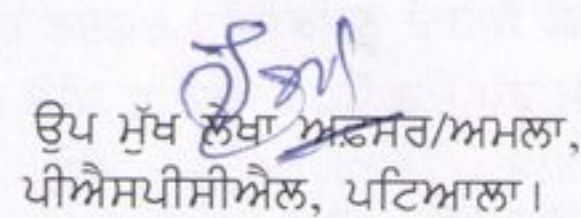 ਉਪ ਮੁੱਖ ਲੇਖਾ ਅਫ਼ਸਰ/ਅਮਲਾ,
ਪੀਐਸਪੀਸੀਐਲ, ਪਟਿਆਲਾ।